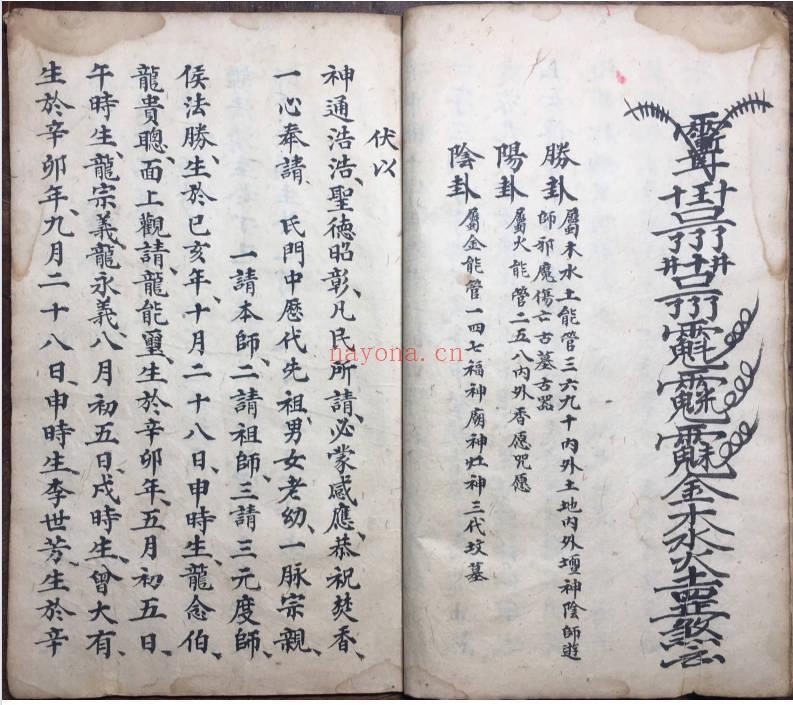 金木水火土
勝卦 屬木水土能管三六九千內外土地內外壇神陰師遊
師邪魔傷亡古墓古器
陽卦 屬火能管二五八內外香愿咒愿
陰卦 屬金能管一四七福神廟神灶神三代坟墓
伏以
神通浩浩、聖德昭彰、凡民所請、必蒙感應、恭祝焚香、
一心奉請 氏門中歷代先祖、男女老幼、一脉宗親、
一請本師、二請祖師、三請三元度師、
侯法勝、生於己亥年、十月二十八日、申時生、龍念伯、
龍貴聰、面上觀請、龍能璽、生於辛卯年、五月初五日、
午時生、龍宗義龍永義八月初五日戌時生、曾大有、
生於辛卯年、九月二十八日、申時生、李世芳、生於辛
nayona.cn